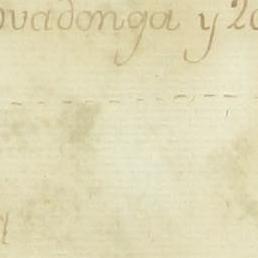 ovadonga y 20